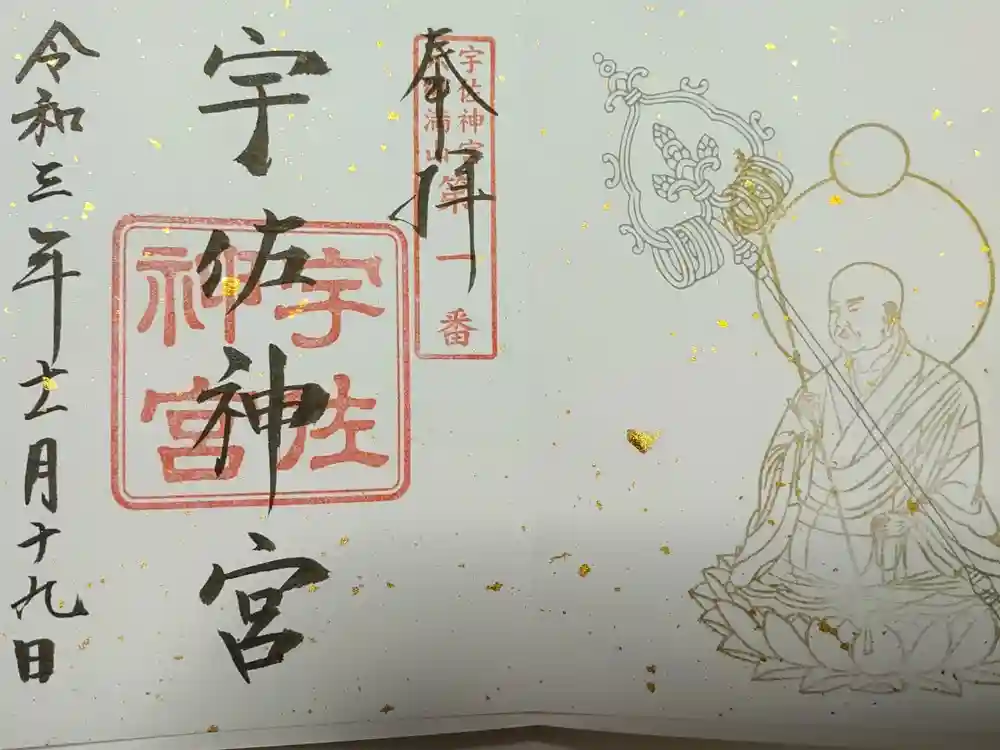 奉拝
宇佐神宮
満山
第一番
宇佐神宮
宇佐
神宮
令和三年十一月十九日